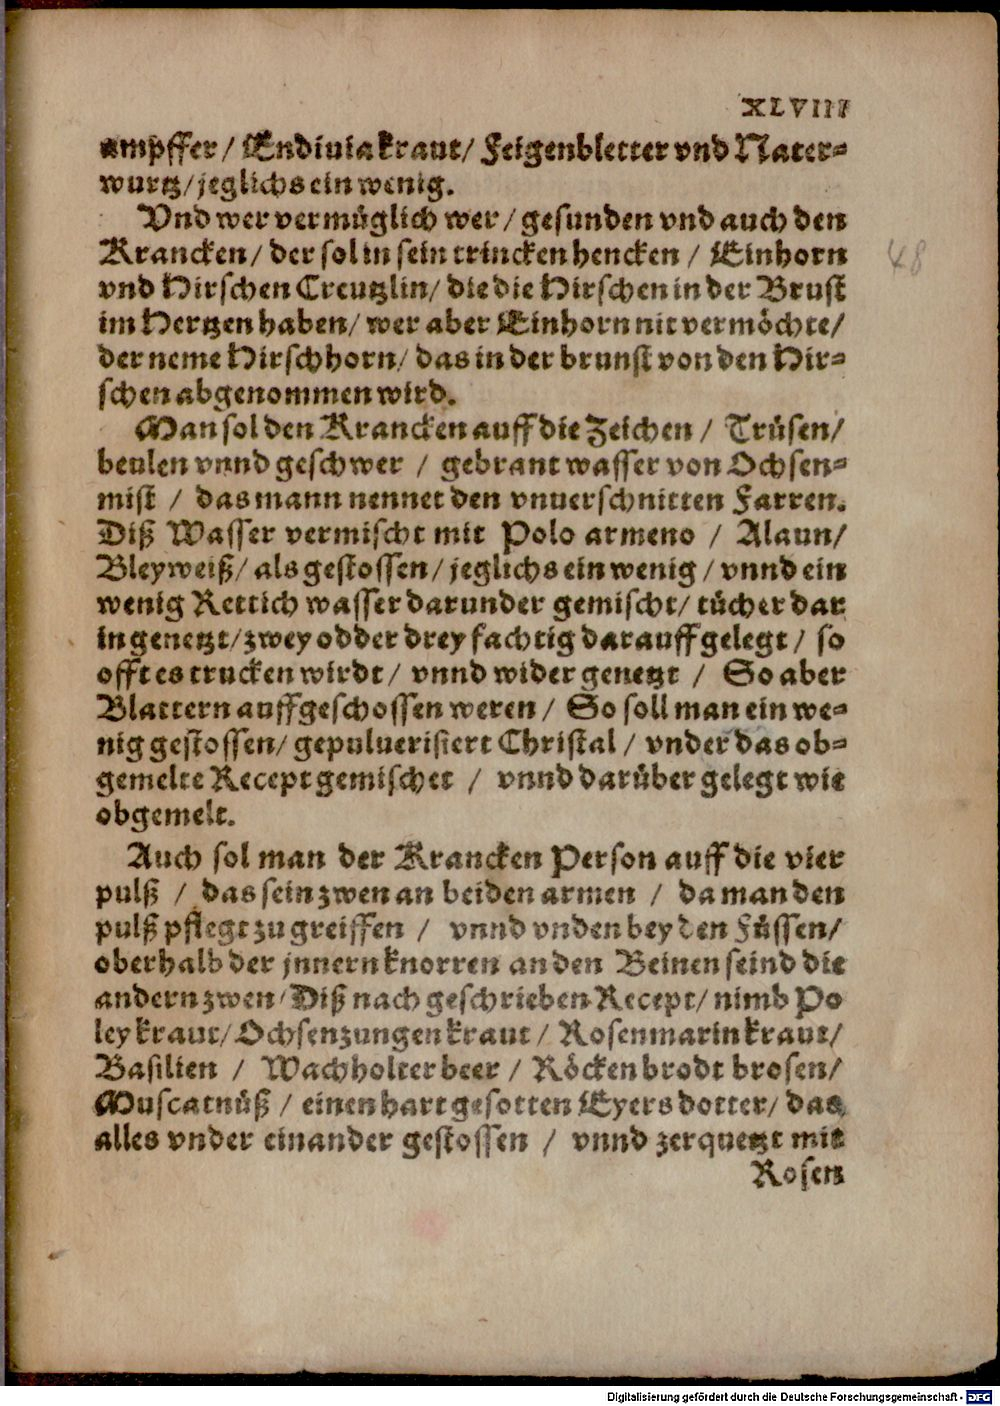 XLVIII
ampffer/ Endiuiakraut/ Feigenbletter vnd Nater=
wurtz/jeglichs ein wenig.
Vnd wer vermüglich wer/ gesunden vnd auch den
Krancken/ der sol in sein trincken hencken / Einhorn
vnd Hirschen Creutzlin/ die die Hirschen in der Brust
im Hertzen haben/ wer aber Einhorn nit vermöchte/
der neme Hirschhorn/ das in der brunst von den Hir=
schen abgenommen wird.
Man sol den Krancken auff die Zeichen / Trüsen/
beulen vnnd geschwer / gebrant wasser von Ochsen=
mist / das mann nennet den vnuerschnitten Farren.
Diß Wasser vermischt mit Polo armeno / Alaun/
Bleyweiß/ als gestossen/ jeglichs ein wenig / vnnd ein
wenig Rettich wasser darunder gemischt/ tücher dar
in genetzt/ zwey odder drey fachtig darauff gelegt / so
offt es trucken wirdt / vnnd wider genetzt / So aber
Blattern auffgeschossen weren / So soll man ein we=
nig gestossen/ gepuluerisiert Christal / vnder das ob=
gemelte Recept gemischet / vnnd darüber gelegt wie
obgemelt.
Auch sol man der Krancken Person auff die vier
pulß / das sein zwen an beiden armen / da man den
pulß pflegt zu greiffen / vnnd vnden bey den Füssen/
oberhalb der jnnern knorren an den Beinen seind die
andern zwen/ Diß nach geschrieben Recept/ nimb Po
ley kraut/ Ochsenzungen kraut / Rosenmarin kraut/
Basilien / Wachholter beer / Röcken brodt brosen/
Muscatnüß / einen hart gesotten Eyers dotter/ das
alles vnder einander gestossen / vnnd zerquetzt mit
Rosen
48
Digitalisierung gefördert durch die Deutsche Forschungsgemeinschaft - DFG